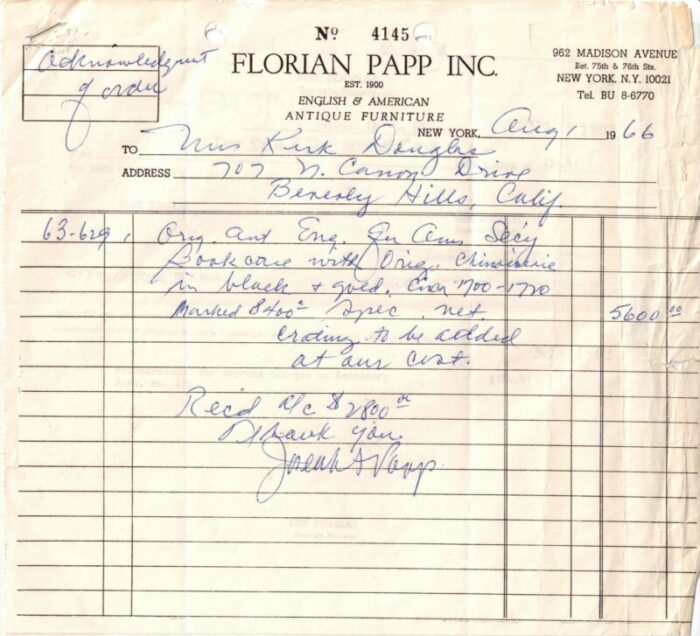 Nº 4145
Acknowledgment
of order
FLORIAN PAPP INC.
EST. 1900
ENGLISH & AMERICAN
ANTIQUE FURNITURE
962 MADISON AVENUE
Bet. 75th & 76th Sts.
NEW YORK, N.Y. 10021
Tel. BU 8-6770
NEW YORK, Aug 1 1966
TO Mrs Kirk Douglas
ADDRESS 707 N. Canon Drive
Beverly Hills, Calif.
63-629 1 Orig. Ant Eng. Qu Ann Sec'y
Bookcase with Orig. Chinoiserie
in black & gold. Circa 1700-1720
Marked 8400 Spec. net. 5600 00
Crating to be added
at our cost.
Rec'd a/c $2800 00
Thank you
Papp